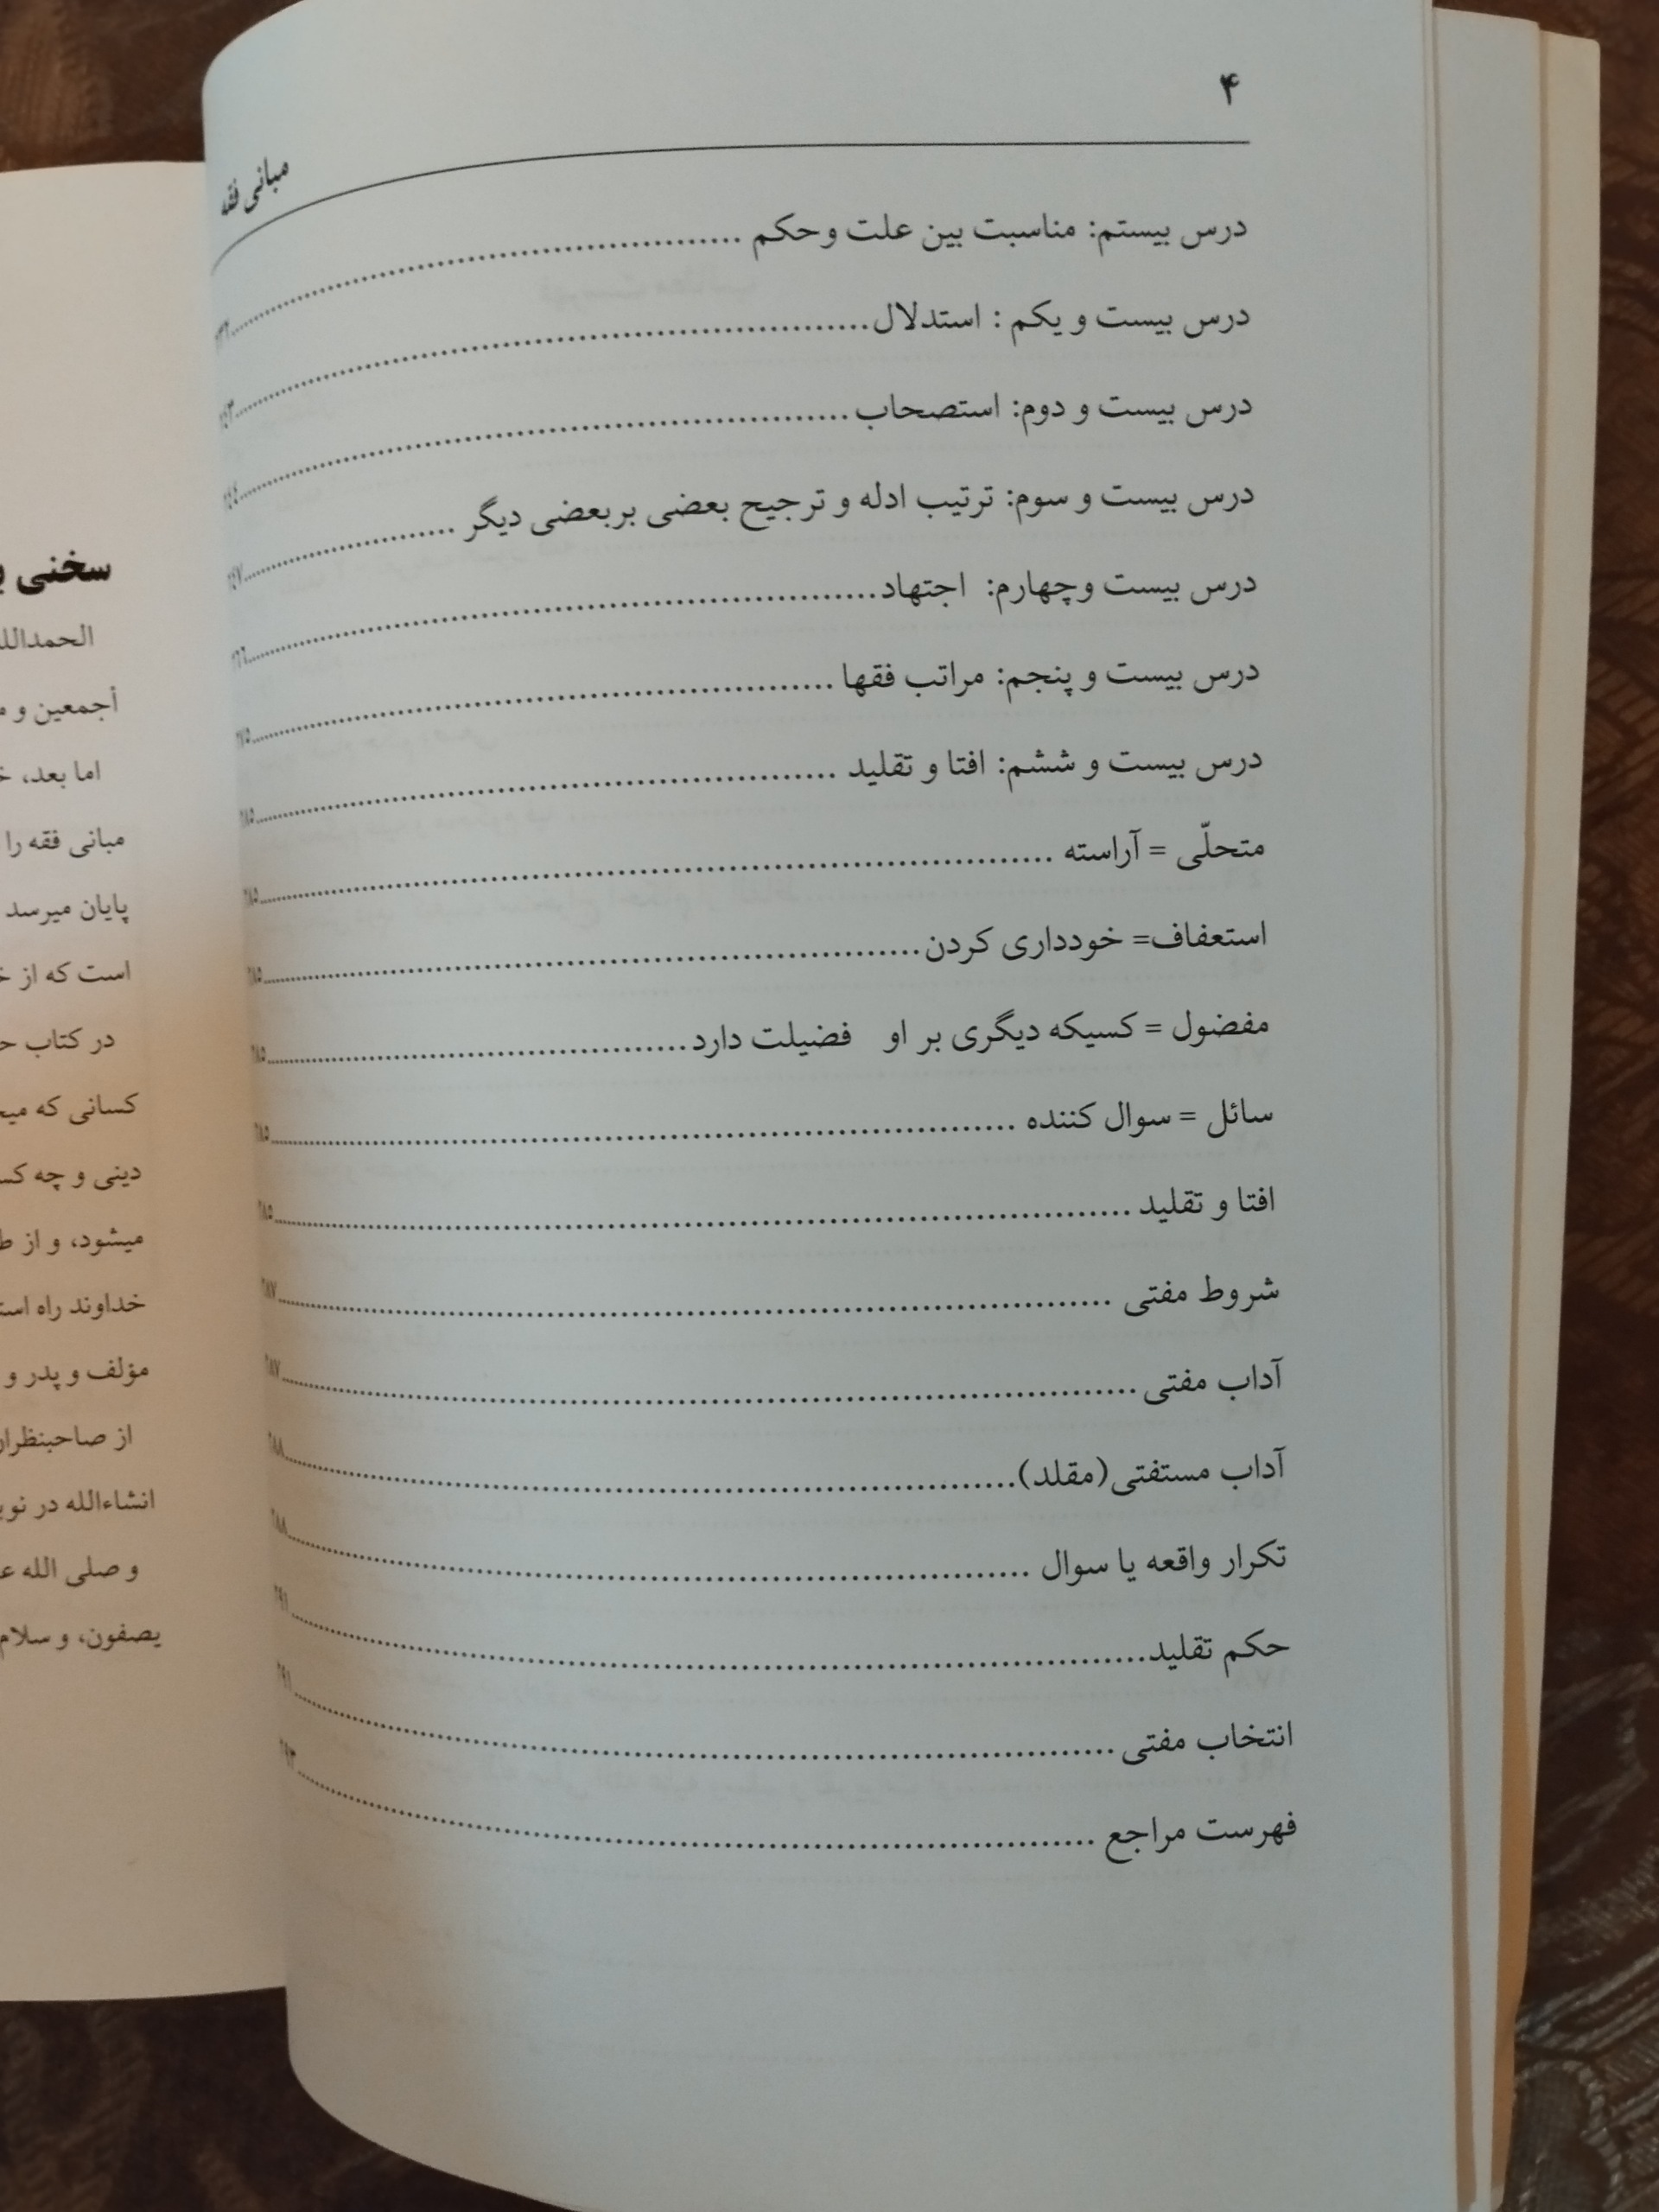 ۴
مبانی فقه
درس بیستم: مناسبت بین علت وحکم ........................................
درس بیست و یکم : استدلال........................................
درس بیست و دوم: استصحاب........................................
درس بیست و سوم: ترتیب ادله و ترجیح بعضی بربعضی دیگر ........................................
درس بیست وچهارم: اجتهاد........................................
درس بیست و پنجم: مراتب فقها ........................................
درس بیست و ششم: افتا و تقلید ........................................
متحلّی = آراسته ........................................
استعفاف= خودداری کردن........................................
مفضول = کسیکه دیگری بر او فضیلت دارد........................................
سائل = سوال کننده ........................................
افتا و تقلید ........................................
شروط مفتی ........................................
آداب مفتی ........................................
آداب مستفتی(مقلد)........................................
تکرار واقعه یا سوال ........................................
حکم تقلید........................................
انتخاب مفتی ........................................
فهرست مراجع ........................................
سخنی
أجمعین و
اما بعد،
مبانی فقه را
پایان میرسد
است که از
در کتاب
کسانی که
دینی و چه
میشود، و از
خداوند راه
مؤلف و پدر و
از
انشاءالله در
و صلی الله
یصفون، و سلام